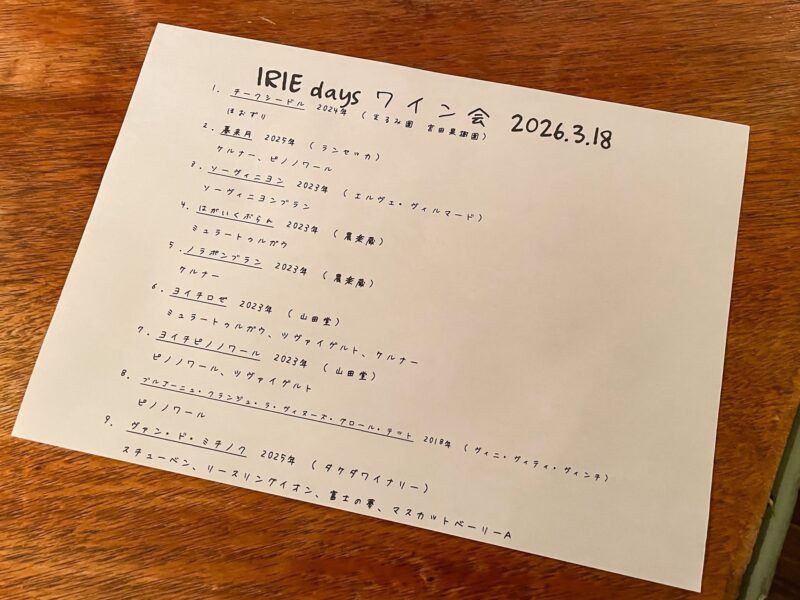 IRIE days ワイン会 2026.3.18
1. チークシードル 2024年 (まるみ園 宮田果樹園)
ほおずり
2. 農楽月 2025年 (ランセッカ)
ケルナー、ピノノワール
3. ソーヴィニヨン 2023年 (エルヴェ・ヴィルマード)
ソーヴィニヨンブラン
4. はがいくぶらん 2023年 (農楽蔵)
ミュラートゥルガウ
5. ノラポンブラン 2023年 (農楽蔵)
ケルナー
6. ヨイチロゼ 2023年 (山田堂)
ミュラートゥルガウ、ツヴァイゲルト、ケルナー
7. ヨイチピノノワール 2023年 (山田堂)
ピノノワール、ツヴァイゲルト
8. ブルゴーニュ・グランジュ・ラ・ヴィヌーズ・グロール・テート 2018年 (ヴィニ・ヴィティ・ヴィンチ)
ピノノワール
9. ヴァン・ド・ミチノク 2025年 (タケダワイナリー)
スチューベン、リースリングイオン、富士の夢、マスカットベーリーA